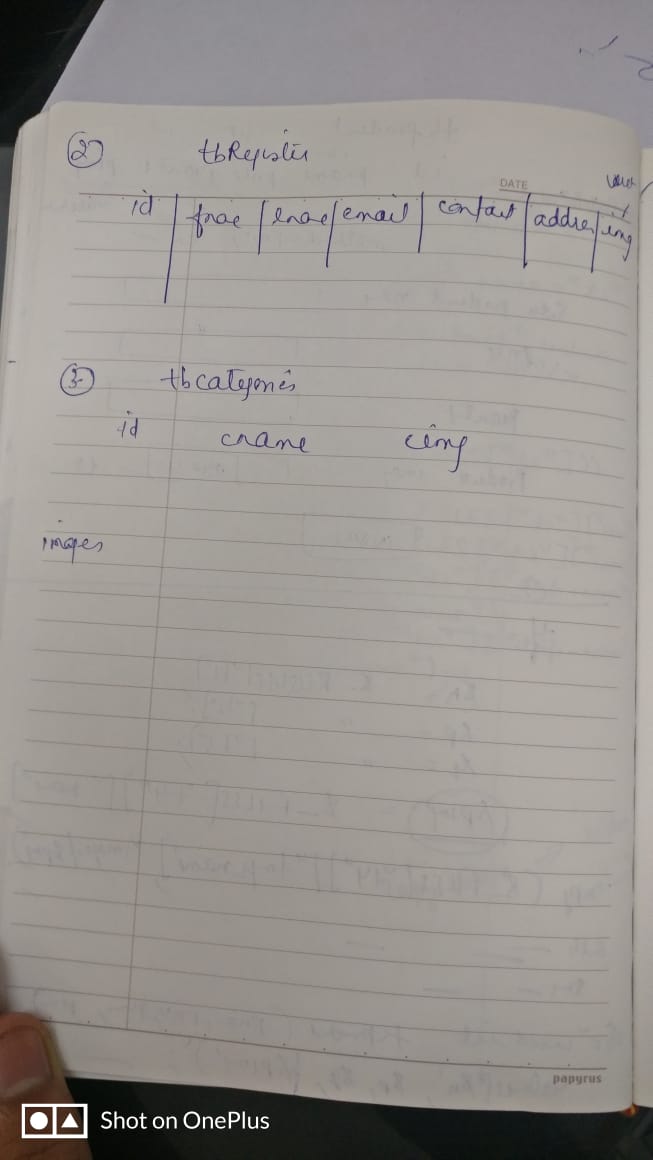 ② tbRegister
DATE
id fname lname email contact address img
③ tbcategories
id cname cimg
images
papyrus
Shot on OnePlus